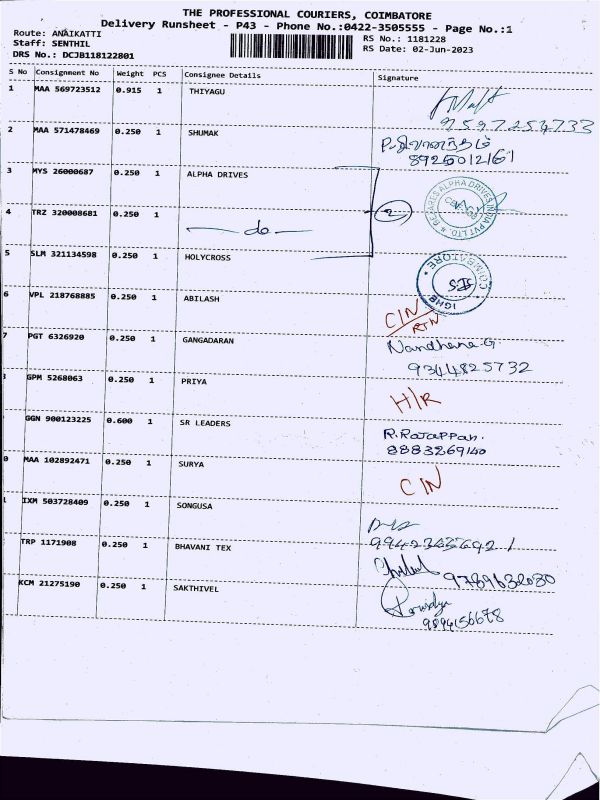 THE PROFESSIONAL COURIERS, COIMBATORE
Delivery Runsheet - P43 - Phone No.:0422-3505555 - Page No.:1
Route: ANAIKATTI
Staff: SENTHIL
DRS No.: DCJB118122801
RS No.: 1181228
RS Date: 02-Jun-2023
S No Consignment No Weight PCS Consignee Details Signature
1 MAA 569723512 0.915 1 THIYAGU
9597254733
2 MAA 571478469 0.250 1 SHUMAK
P. சிவானந்தம்
8925012161
3 MYS 26000687 0.250 1 ALPHA DRIVES
ALPHA DRIVES INDIA PVT LTD
4 TRZ 320008681 0.250 1
do
2
5 SLM 321134598 0.250 1 HOLYCROSS
COIMBATORE
6 VPL 218768885 0.250 1 ABILASH
C/N
RTN
7 PGT 6326920 0.250 1 GANGADARAN
Nandhana.G
9344825732
GPM 5268063 0.250 1 PRIYA
H/R
GGN 900123225 0.600 1 SR LEADERS
R.Rajappan.
8883269140
MAA 102892471 0.250 1 SURYA
C/N
IXM 503728409 0.250 1 SONGUSA
TRP 1171908 0.250 1 BHAVANI TEX
9789632080
KCM 21275190 0.250 1 SAKTHIVEL
9894156678